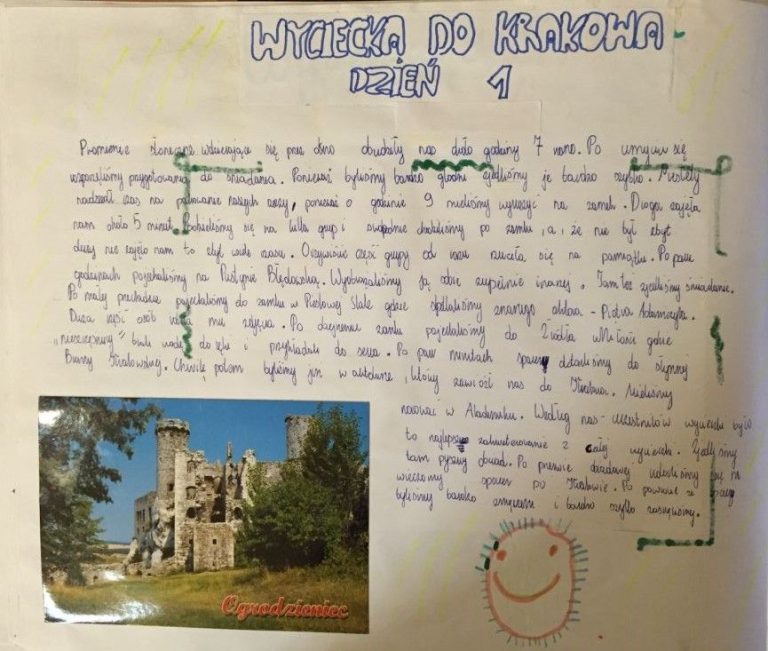 WYCIECKA DO KRAKOWA
DZIEŃ 1
Promienie słoneczne wdzierające się przez okno obudziły nas około godziny 7 rano. Po umyciu się
do śniadania. Ponieważ byliśmy bardzo głodni zjedliśmy je bardzo szybko. Niestety
nadszedł czas na pakowanie naszych rzeczy, ponieważ o godzinie 9 mieliśmy wyruszyć na zamek. Droga zajęła
nam około 5 minut. Podzieliśmy się na kilka grup i swobodnie chodziliśmy po zamku, a, że nie był zbyt
duży nie zajęło nam to zbyt wiele czasu. Oczywiście część grupy od razu rzuciła się na pamiątki. Po paru
godzinach pojechaliśmy na Pustynię Błędowską. Wyobrażaliśmy ją sobie zupełnie inaczej. Tam też zjedliśmy śniadanie.
Po małej przekąsce pojechaliśmy do zamku w Pieskowej Skale gdzie spotkaliśmy znanego aktora - Piotra Adamczyka.
Duża część osób robiła mu zdjęcia. Po zwiedzeniu zamku pojechaliśmy do Źródła Miłości gdzie
brali wodę do ręki i przykładali do serca. Po paru minutach spaceru dotarliśmy do słynnej
Bramy Krakowskiej. Chwilę potem byliśmy już w autokarze, który zawiózł nas do Krakowa. Mieliśmy
nocować w Akademiku. Według nas - uczestników wycieczki było
to najlepsze zakwaterowanie z całej wycieczki. Zjedliśmy
tam pyszny obiad. Po przerwie obiadowej udaliśmy się na
wieczorny spacer po Krakowie. Po powrocie ze spaceru
byliśmy bardzo zmęczeni i bardzo szybko zasnęliśmy.
Ogrodzieniec